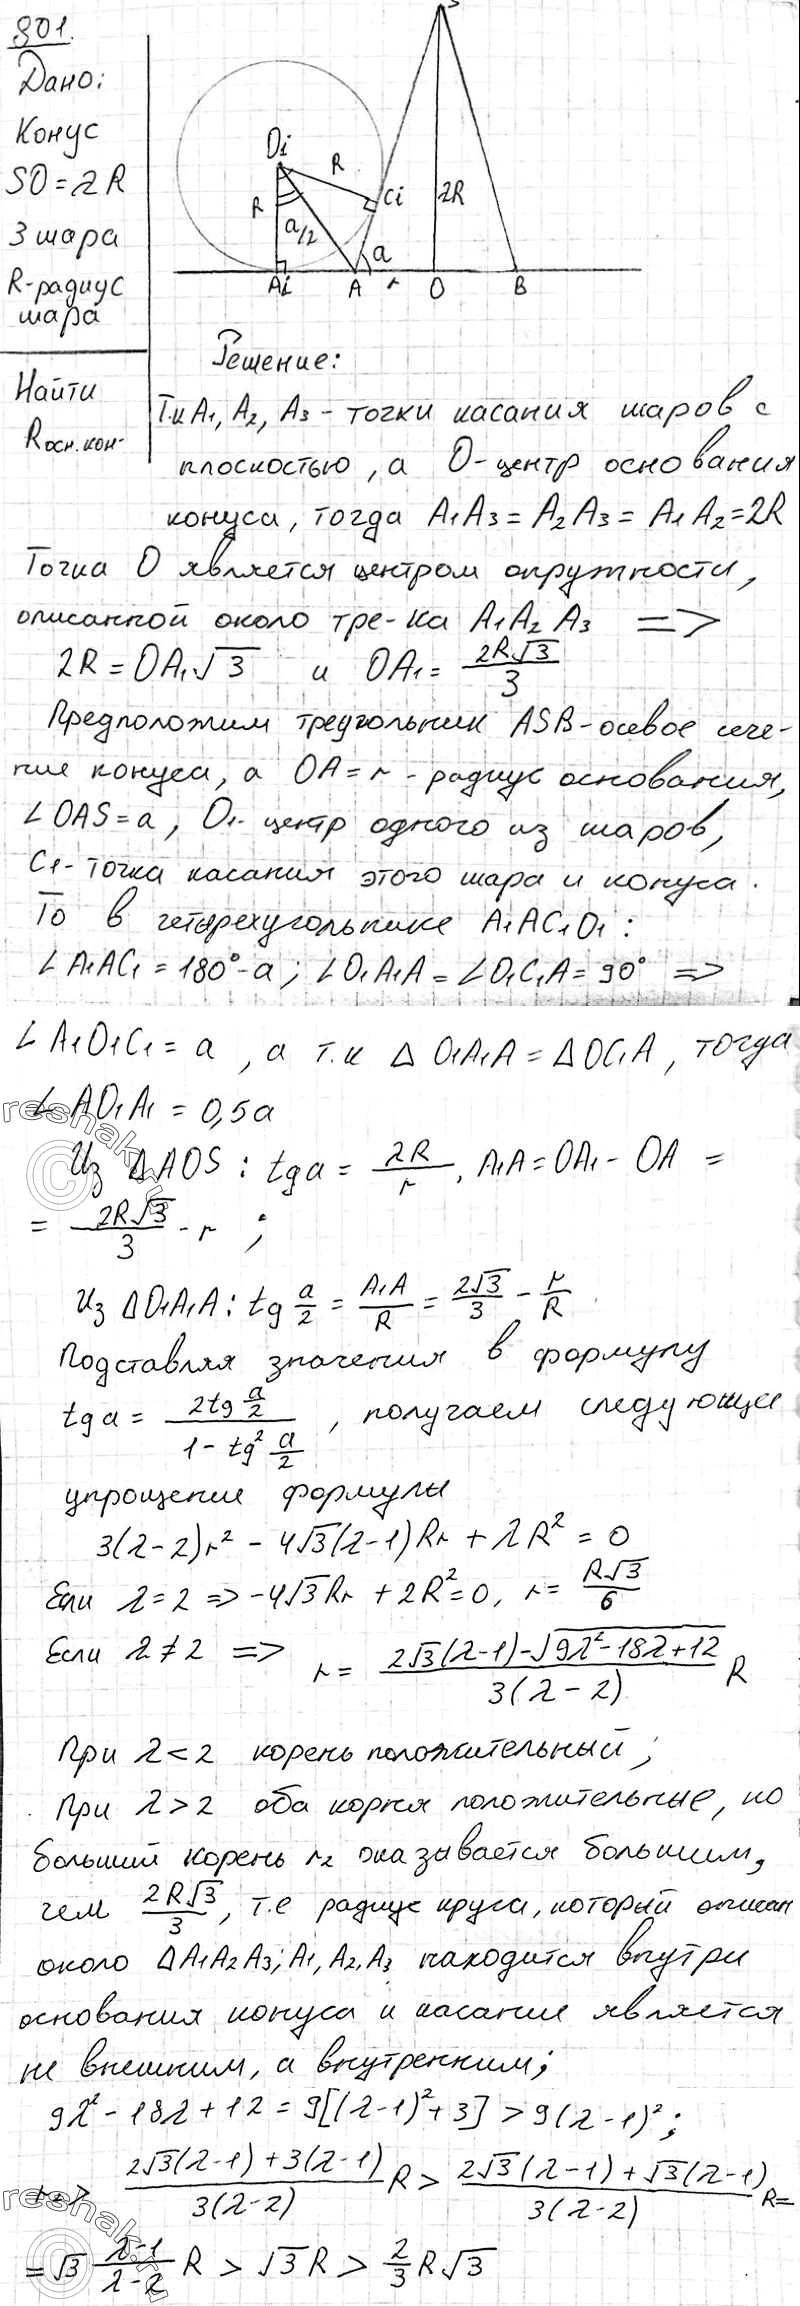 801.
Дано:
Конус
SO=λR
3 шара
R-радиус
шара
Найти
Rосн.кон-
S
Oi
R
Ci
R
a/2
λR
a
Ai A r O B
Решение:
Т.к A₁, A₂, A₃ - точки касания шаров с
плоскостью, а O-центр основания
конуса, тогда A₁A₃ = A₂A₃ = A₁A₂=2R
Точка O является центром окружности,
описанной около тре-ка A₁A₂A₃ =>
2R = OA₁√3 и OA₁ = 2R√3/3
Предположим треугольник ASB-осевое сече-
ние конуса, а OA=r - радиус основания,
∠OAS=a, O₁- центр одного из шаров,
C₁-точка касания этого шара и конуса.
То в четырехугольнике A₁AC₁O₁:
∠A₁AC₁ = 180°-a; ∠O₁A₁A = ∠O₁C₁A = 90° =>
∠A₁O₁C₁ = a, а т.к ΔO₁A₁A = ΔOC₁A, тогда
∠AO₁A₁ = 0,5a
Из ΔAOS: tga = λR/r, A₁A = OA₁ - OA =
= 2R√3/3 - r;
Из ΔO₁A₁A: tg a/2 = A₁A/R = 2√3/3 - r/R
Подставляя значения в формулу
tga = 2tg a/2 / 1 - tg² a/2, получаем следующее
упрощение формулы
3(λ-2)r² - 4√3(λ-1)Rr + λR² = 0
Если λ=2 => -4√3Rr + 2R²=0, r = R√3/6
Если λ≠2 => r = 2√3(λ-1)-√9λ²-18λ+12 / 3(λ-2) R
При λ<2 корень положительный;
При λ>2 оба корня положительные, но
больший корень r₂ оказывается большим,
чем 2R√3/3, т.е радиус круга, который описан
около ΔA₁A₂A₃; A₁, A₂, A₃ находится внутри
основания конуса и касание является
не внешним, а внутренним;
9λ²-18λ+12 = 9[(λ-1)²+3] > 9(λ-1)²;
r₂> 2√3(λ-1)+3(λ-1)/3(λ-2) R > 2√3(λ-1)+√3(λ-1)/3(λ-2) R=
= √3 λ-1/λ-2 R > √3R > 2/3 R√3